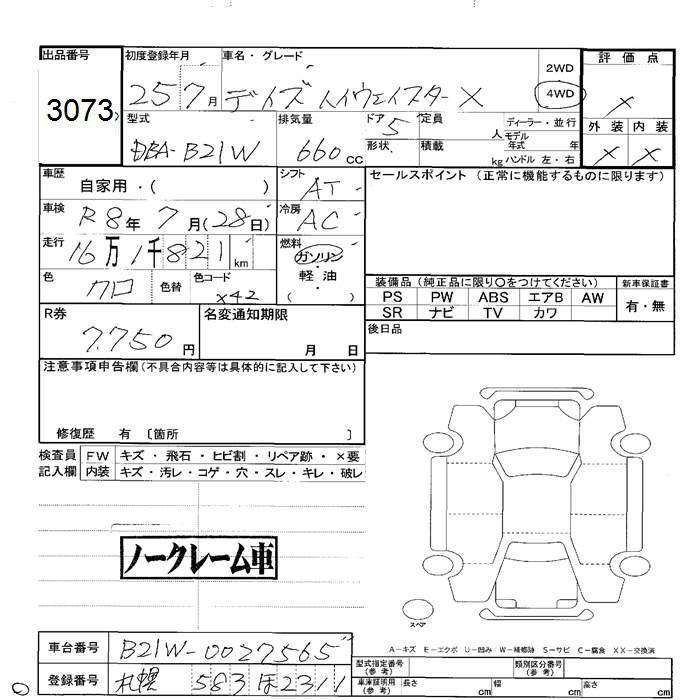 出品番号 初度登録年月 車名・グレード 評価点
3073 25 7月 デイズ ハイウェイスター X 2WD 4WD ×
型式 排気量 ドア 5 定員 人 ディーラー・並行 モデル 外装 内装
DBA-B21W 660cc 形状 積載 kg 年式 年 ハンドル 左・右 × ×
車歴 自家用・( ) シフト AT セールスポイント (正常に機能するものに限ります)
車検 R8年 7月(28日) 冷房 AC
走行 16万1千821km 燃料 ガソリン・軽油 ( )
色 クロ 色替 色コード X42 装備品 (純正品に限り○をつけてください) 新車保証書
PS PW ABS エアB AW 有・無
SR ナビ TV カワ
R券 7.750円 名変通知期限 月 日 後日品
注意事項申告欄(不具合内容等は具体的に記入して下さい)
修復歴 有 〔箇所 〕
検査員 FW キズ・飛石・ヒビ割・リペア跡・×要
記入欄 内装 キズ・汚レ・コゲ・穴・スレ・キレ・破レ
ノークレーム車
スペア
A-キズ E-エクボ U-凹み W-補修跡 S-サビ C-腐食 XX-交換済
車台番号 B21W-0027565 型式指定番号 (参考) 類別区分番号 (参考)
登録番号 札幌 583 ほ 2311 車庫証明用 (参考) 長さ cm 幅 cm 高さ cm